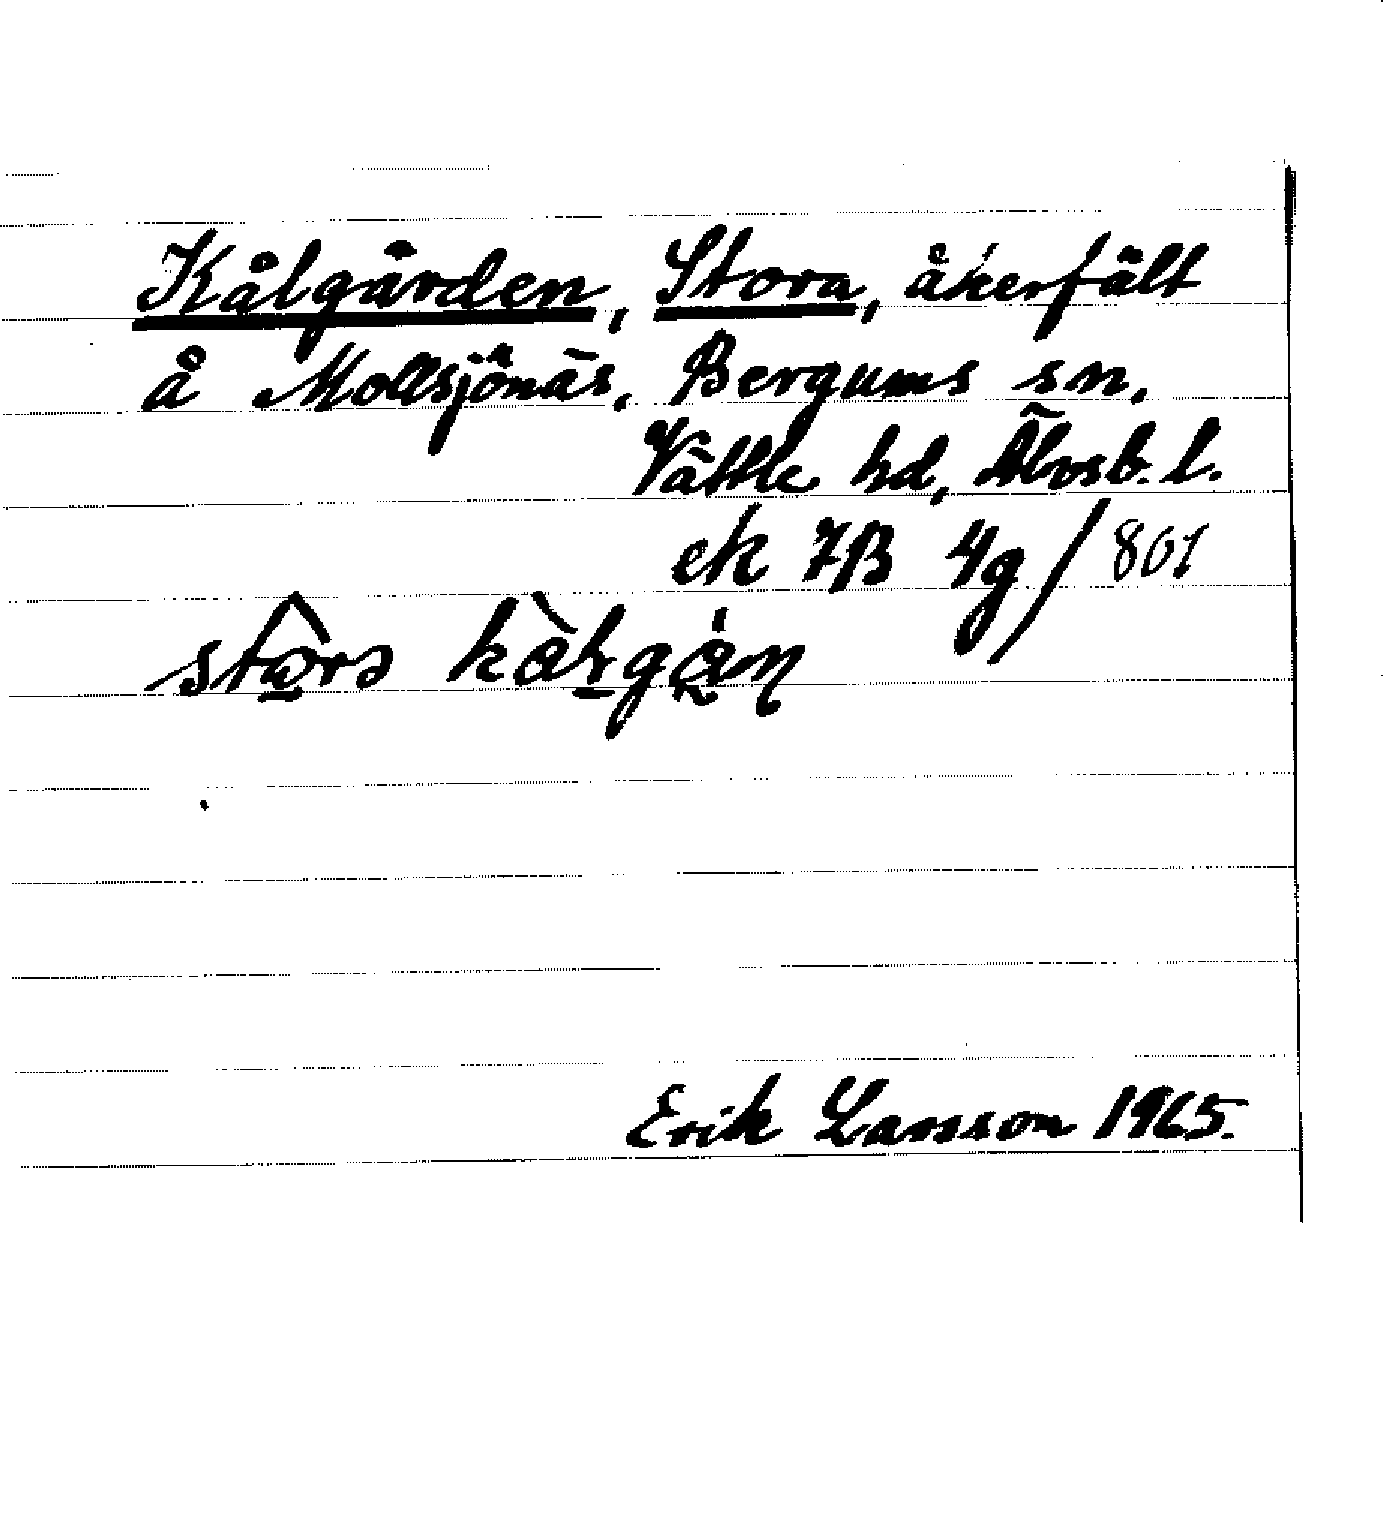 Kålgården, Stora, åkerfält
å Mollsjönäs, Bergums sn,
Vättle hd, Älvsb. l.
ek 7B 4g / 801
Erik Larsson 1965.